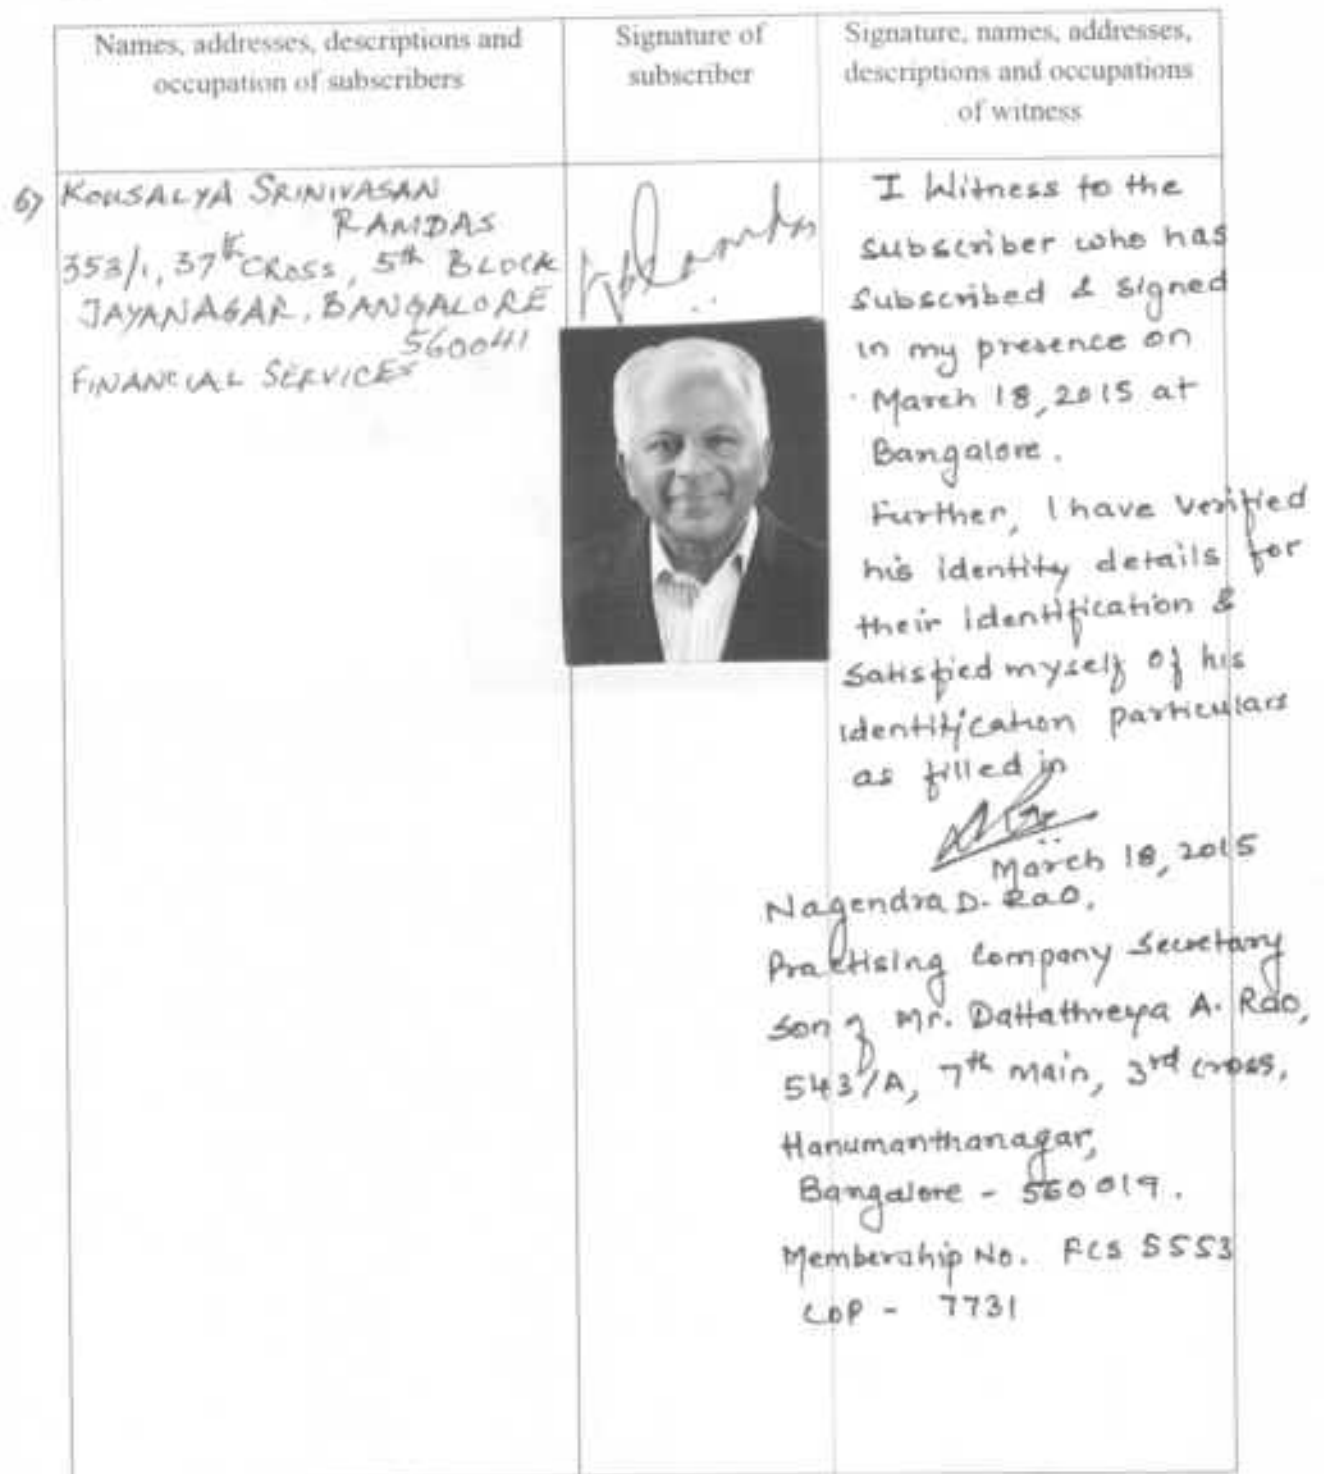 Names, addresses, descriptions and
occupation of subscribers
Signature of
subscriber
Signature, names, addresses,
descriptions and occupations
of witness
6) KOUSALYA SRINIVASAN
RAMDAS
353/1, 37th CROSS, 5th BLOCK
JAYANAGAR, BANGALORE
560041
FINANCIAL SERVICES
I Witness to the
subscriber who has
subscribed & signed
in my presence on
March 18, 2015 at
Bangalore.
Further, I have verified
his identity details for
their identification &
satisfied myself of his
identification particulars
as filled in
March 18, 2015
Nagendra D. Rao,
Practising Company Secretary
son of Mr. Dattathreya A. Rao,
543/A, 7th Main, 3rd cross,
Hanumanthanagar,
Bangalore - 560019.
Membership No. FCS 5553
COP - 7731